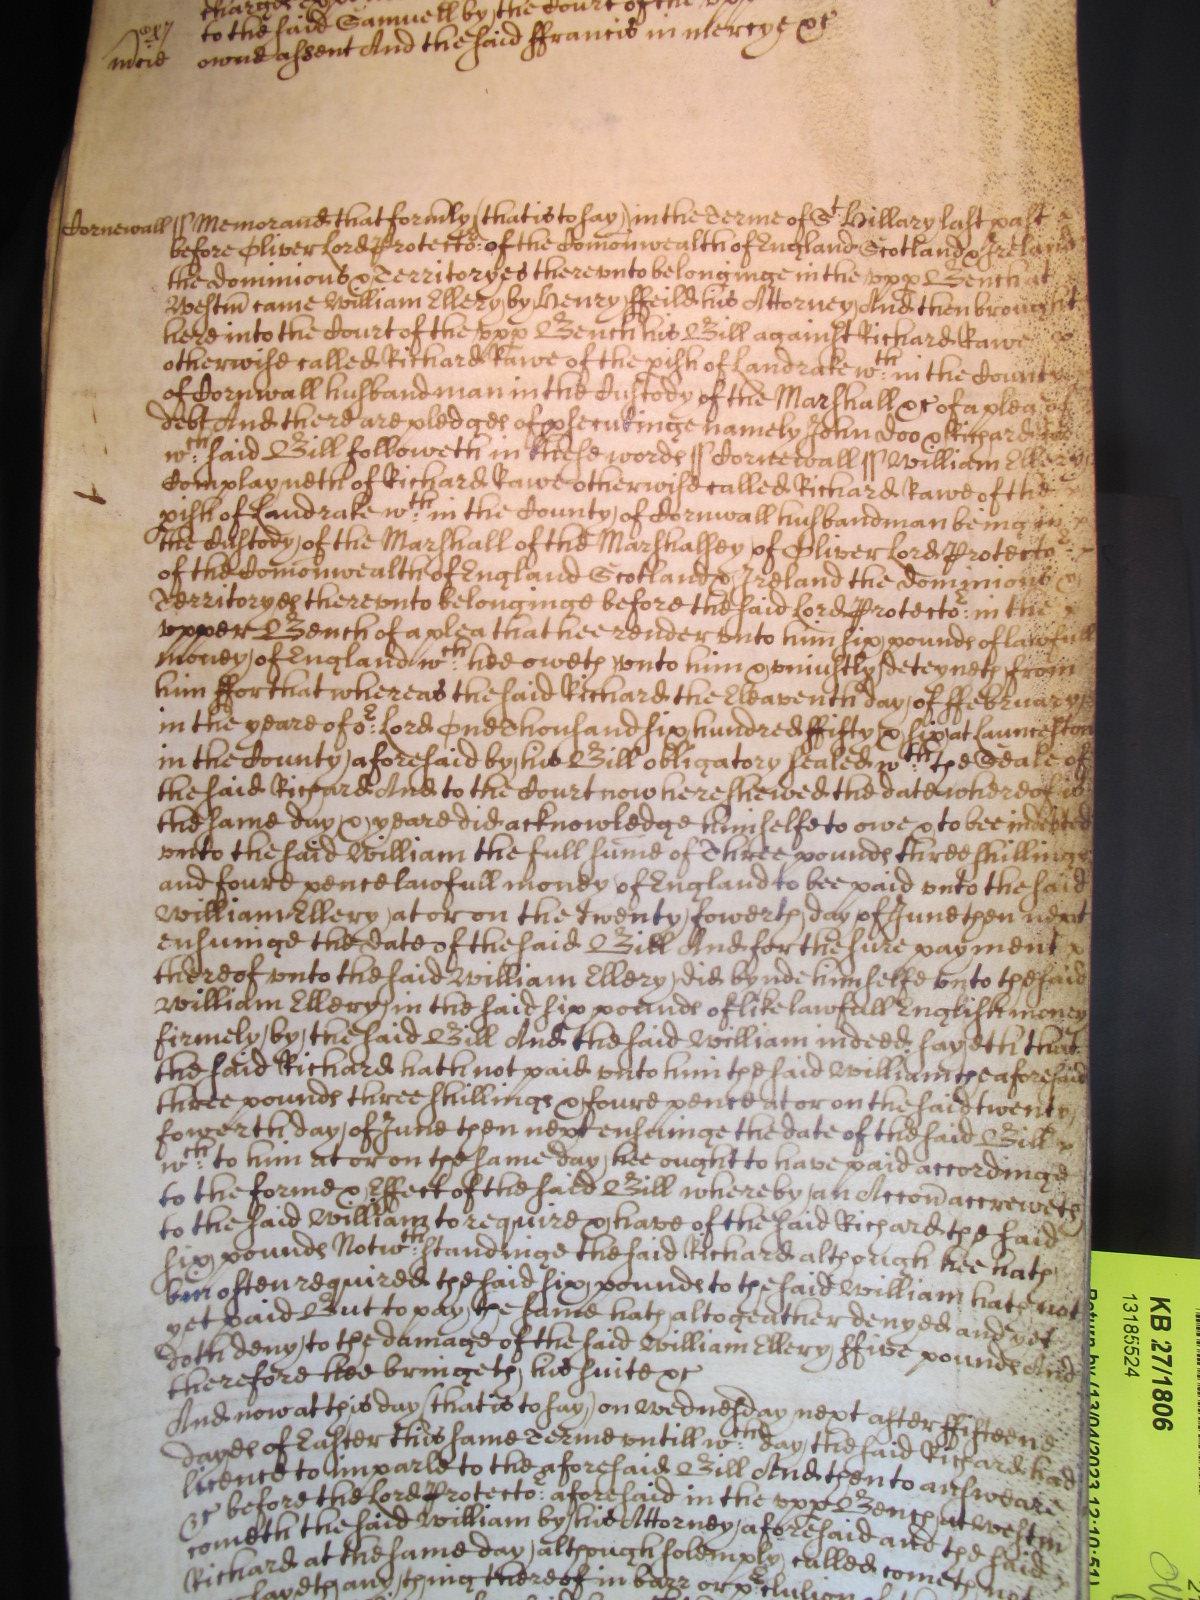 to the said Samuell by the Court of the upp
mcie owne assent And the said ffrancis in mercye &c
Cornewall ss Memorand that formly (that is to say) in the Terme of St Hillary last past
before Oliver Lord Protector of the Comonwealth of England Scotland & Ireland
the dominions & Territoryes thereunto belonginge in the upp Bench at
Westm came William Ellery by Henry ffeild his Attorney And then brought
here into the Court of the upp Bench his Bill against Richard Rawe
otherwise called Richard Rawe of the pish of Landrake wth in the County
of Cornwall husbandman in the Custody of the Marshall &c of a plea of
debt And there are pledges of psecutinge namely John Doo & Richard Roo
wch said Bill followeth in these words ss Cornewall ss William Ellery
Complayneth of Richard Rawe otherwise called Richard Rawe of the
pish of Landrake wth in the County of Cornwall husbandman being in
the Custody of the Marshall of the Marshalsey of Oliver Lord Protector
of the Comonwealth of England Scotland & Ireland the dominions &
Territoryes thereunto belonginge before the said Lord Protector in the
upper Bench of a plea that hee render unto him six pounds of lawfull
money of England wch hee oweth unto him & uniustly deteyneth from
him ffor that whereas the said Richard the Eleaventh day of ffebruary
in the yeare of or Lord One Thousand six hundred ffifty & six at Launceston
in the County aforesaid by his Bill obligatory sealed wth the Seale of
the said Richard And to the Court now here shewed the date whereof is
the same day & yeare did acknowledge himselfe to owe & to bee indebted
unto the said William the full sume of Three pounds three shillings
and foure pence lawfull money of England to bee paid unto the said
William Ellery at or on the twenty fowerth day of June then next
ensuinge the date of the said Bill And for the sure payment
thereof unto the said William Ellery did bynde himselfe unto the said
William Ellery in the said six pounds of like lawfull English money
firmely by the said Bill And the said William indeed sayeth that
the said Richard hath not paid unto him the said William the aforesaid
three pounds three shillings & foure pence at or on the said twenty
fowerth day of June then next ensuinge the date of the said Bill
wch to him at or on the same day hee ought to have paid accordinge
to the forme & Effect of the said Bill whereby an Accon accreweth
to the said William to require & have of the said Richard the said
six pounds Notwthstandinge the said Richard although hee hath
bin often required the said six pounds to the said William hath not
yet paid But to pay the same hath altogeather denyed and yet
doth deny to the damage of the said William Ellery ffive pounds And
therefore hee bringeth his suite &c
And now at this day (that is to say) on Wednesday next after ffifteene
dayes of Easter this same Terme untill wch day the said Richard had
licence to imparle to the aforesaid Bill And then to answeare
&c before the Lord Protector aforesaid in the upp Bench at Westm
cometh the said William by his Attorney aforesaid and the said
Richard at the same day although solemply called cometh not
sayeth any thing thereof in barr or pclusion
KB 27/1806
13185524